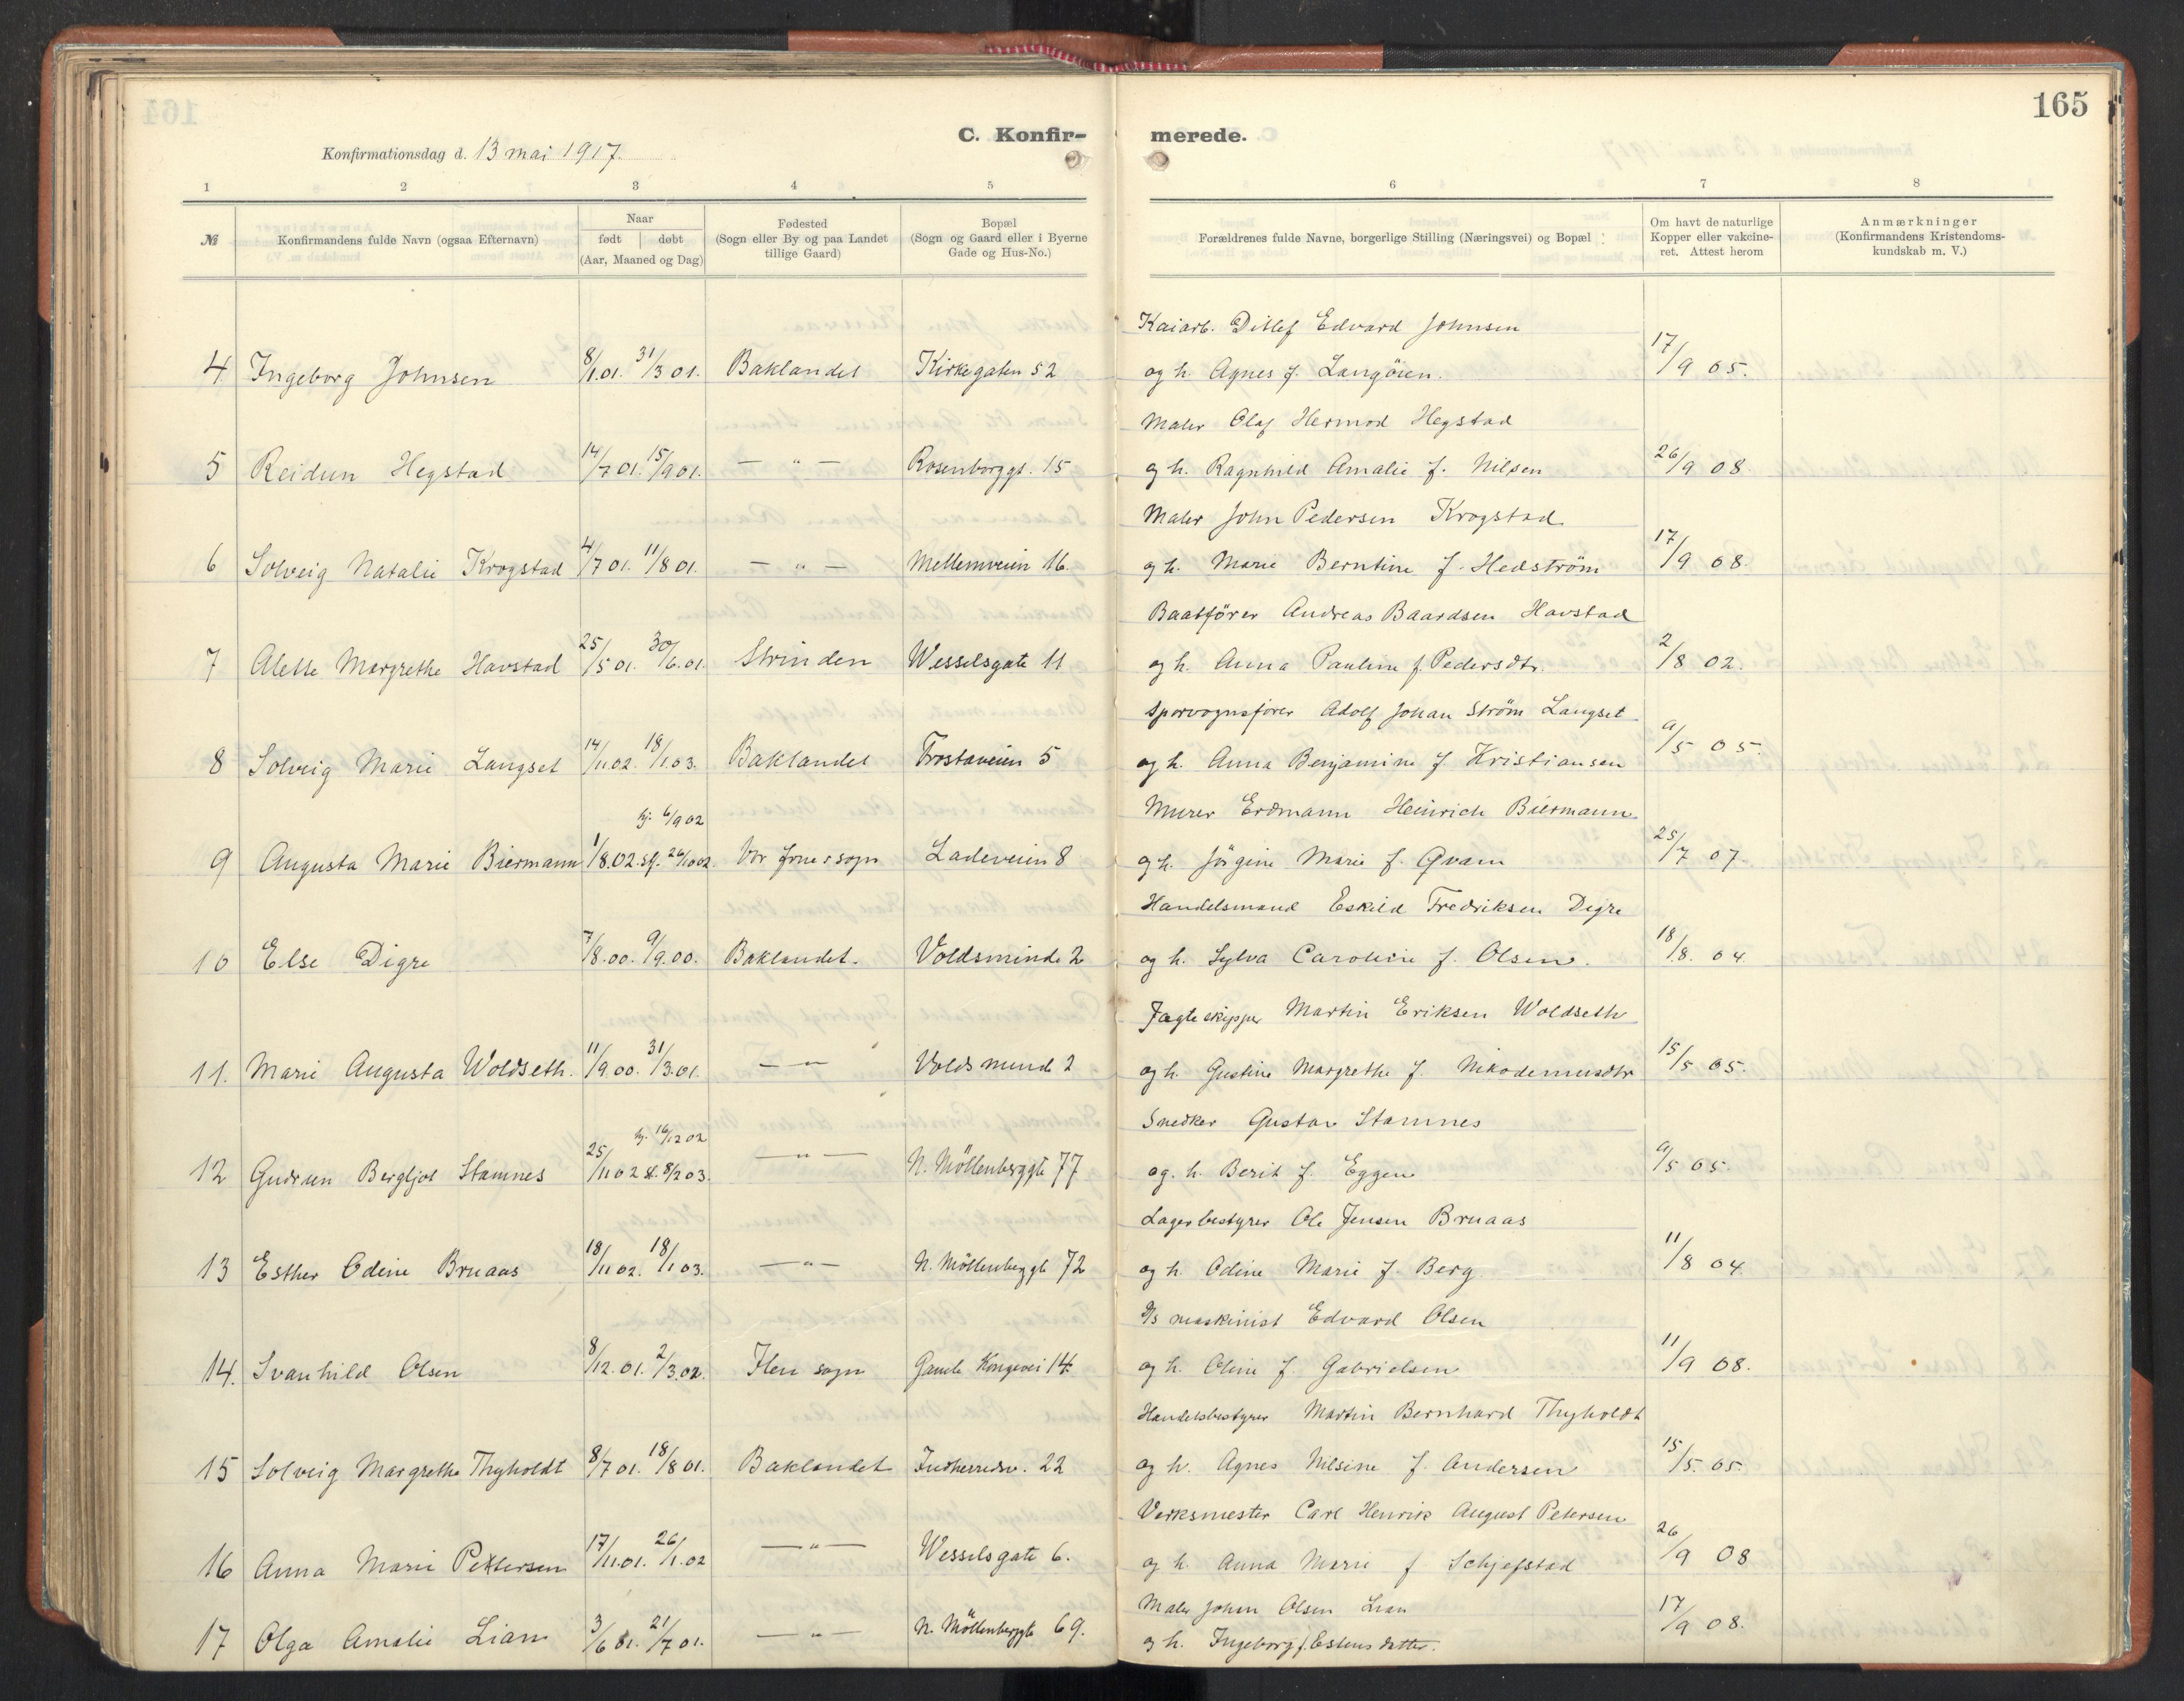 165
C. Konfir- merede.
Konfirmationsdag d. 13 mai 1917.
1 2 3 4 5 6 7 8
№ Konfirmandens fulde Navn (ogsaa Efternavn) Naar født døbt (Aar, Maaned og Dag) Fødested (Sogn eller By og paa Landet tillige Gaard) Bopæl (Sogn og Gaard eller i Byerne Gade og Hus-No.) Forældrenes fulde Navne, borgerlige Stilling (Næringsvei) og Bopæl Om havt de naturlige Kopper eller vakcineret. Attest herom Anmærkninger (Konfirmandens Kristendomskundskab m. V.)
Kaiarb. Ditlef Edvard Johnsen
4 Ingeborg Johnsen 8/1.01. 31/3 01. Baklandet Kirkegaten 52 og h. Agnes f. Langörien. 17/9 05.
Maler Olaf Hermod Hegstad
5 Reidun Hegstad 14/7 01. 15/9 01. — " — Rosenborggt. 15 og h. Ragnhild Amalie f. Nilsen 26/9 08.
Maler John Pedersen Krogstad
6 Solveig Natalie Krogstad 4/7 01. 11/8 01. — " — Mellemveien 16. og h. Marie Berntine f. Hedström 17/9 08.
Baatförer Andreas Baardsen Havstad
7 Alette Margrethe Havstad 25/5 01. 30/6.01. Strinden Wesselsgate 11 og h. Anna Pauline f. Pedersdtr. 2/8 02.
Sporvognsfører Adolf Johan Strøm Langset
8 Solveig Marie Langset 14/11.02. 18/1.03. Baklandet Frostaveien 5 og h. Anna Benjamine f. Kristiansen 9/5 05.
hj. 6/9 02 Murer Erdmann Heinrich Biermann
9 Augusta Marie Biermann 1/8.02. st. 26/10 02. Vor Frues sogn Ladeveien 8 og h. Jörgine Marie f. Qvam 25/7 07.
Handelsmand Eskild Fredriksen Digre
10 Else Digre 7/8.00. 9/9.00. Baklandet. Voldsminde 2 og h. Sylva Caroline f. Olsen. 18/8. 04.
Jagteskipper Martin Eriksen Woldseth
11. Marie Augusta Woldseth. 11/9.00. 31/3.01. — " Voldsminde 2 og h. Gustine Margrethe f. Nikodemusdtr 15/5 05.
hj. 16/12 02 Snedker Gustav Stamnes
12 Gudrun Bergljot Stamnes 25/11 02 st. 8/2 03. — " — N. Möllenberggt 77 og. h. Berit f. Eggen 9/5 05.
Lagerbestyrer Ole Jensen Bruaas
13 Esther Odine Bruaas 18/11 02. 18/1 03. — " — N. Möllenberggt 72 og h. Odine Marie f. Berg 11/8 04.
D/s maskinist Edvard Olsen
14. Svanhild Olsen 8/12.01. 2/3.02. Ilen sogn Gamle Kongevei 14. og h. Oline f. Gabrielsen 11/9 08.
Handelsbestyrer Martin Bernhard Thyholdt
15 Solveig Margrethe Thyholdt 8/7 01. 18/8 01. Baklandet Indherredsv. 22 og h. Agnes Nilsine f. Andersen 15/5. 05.
Verksmester Carl Henrik August Petersen
16 Anna Marie Pettersen 17/11.01. 26/1.02 — " — Wesselsgate 6. og h. Anna Marie f Schjefstad 26/9 08
Maler Johan Olsen Lian
17 Olga Amalie Lian 3/6 01. 21/7 01. — " — N. Möllenberggt 69. og h. Ingeborg f. Estensdatter. 17/9 08.